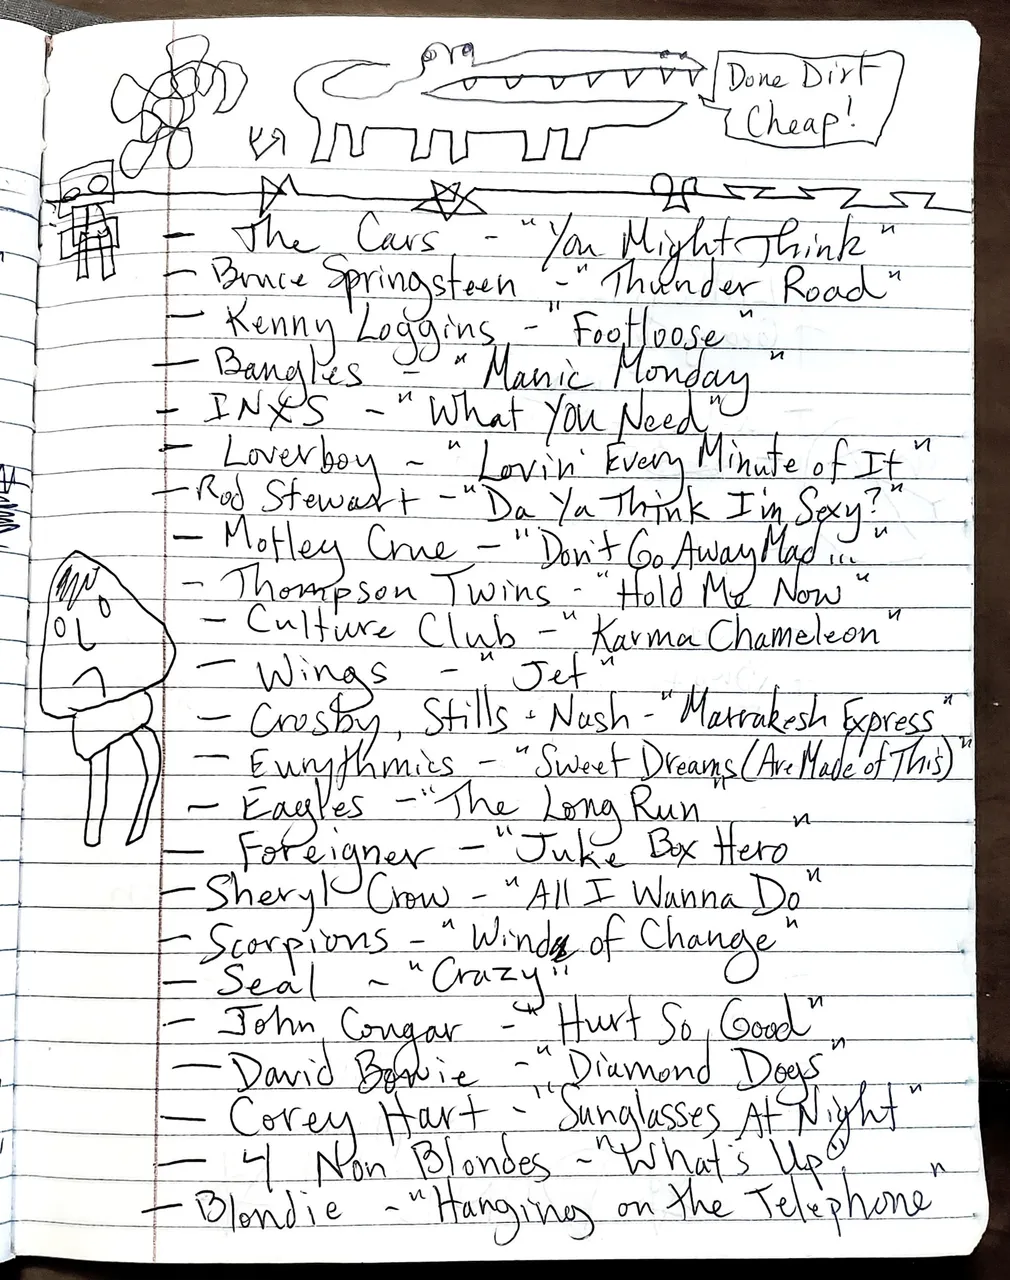 Done Dirt
Cheap!
- The Cars - "You Might Think"
- Bruce Springsteen - "Thunder Road"
- Kenny Loggins - "Footloose"
- Bangles - "Manic Monday"
- INXS - "What You Need"
- Loverboy - "Lovin' Every Minute of It"
- Rod Stewart - "Da Ya Think I'm Sexy?"
- Motley Crue - "Don't Go Away Mad..."
- Thompson Twins - "Hold Me Now"
- Culture Club - "Karma Chameleon"
- Wings - "Jet"
- Crosby, Stills + Nash - "Marrakesh Express"
- Eurythmics - "Sweet Dreams (Are Made of This)"
- Eagles - "The Long Run"
- Foreigner - "Juke Box Hero"
- Sheryl Crow - "All I Wanna Do"
- Scorpions - "Wind of Change"
- Seal - "Crazy"
- John Cougar - "Hurt So Good"
- David Bowie - "Diamond Dogs"
- Corey Hart - "Sunglasses At Night"
- 4 Non Blondes - "What's Up?"
- Blondie - "Hanging on the Telephone"